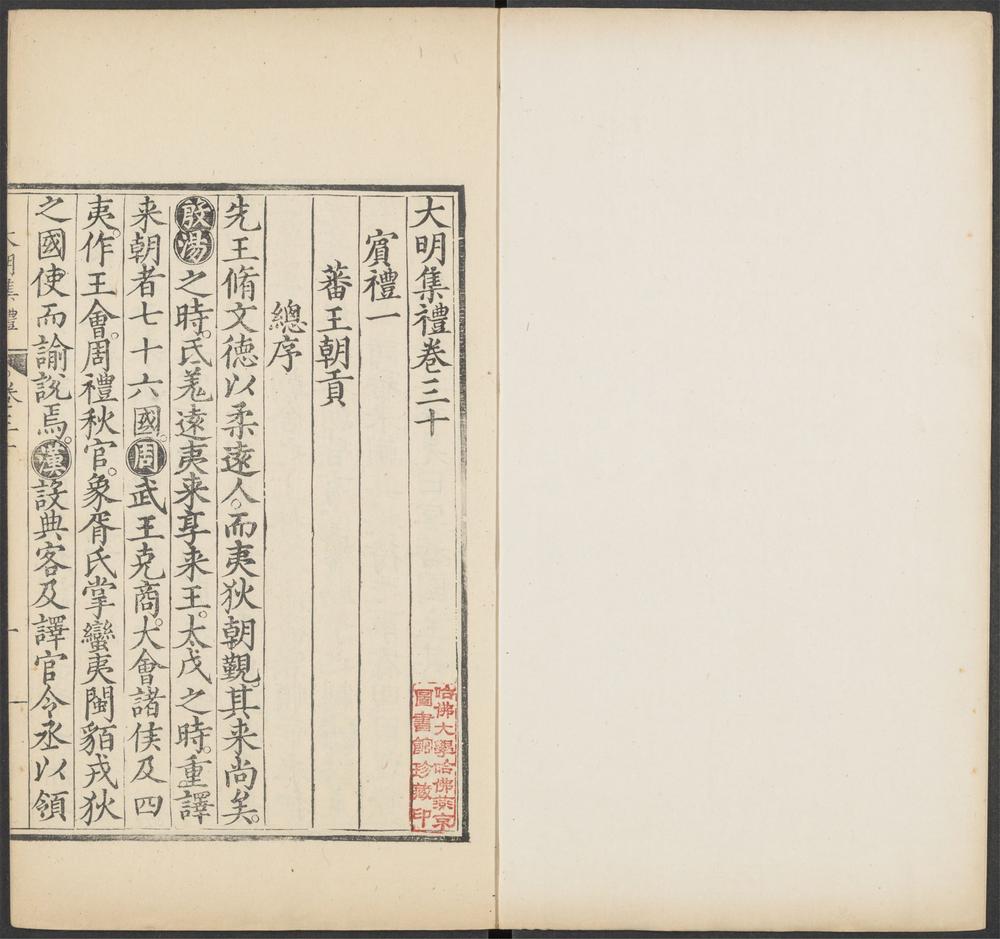 大明集禮卷三十
賔禮一
蕃王朝貢
總序
先王脩文德以柔逺人。而夷狄朝覲。其来尚矣。
殷湯之時。氐羌逺夷来享来王。太戊之時。重譯
来朝者七十六國。周武王克商。大會諸侯及四
夷。作王會。周禮秋官。象胥氏掌蠻夷閩貊戎狄
之國使而諭説焉。漢設典客及譯官令丞以領
哈佛大學哈佛燕京
圖書館珍藏印